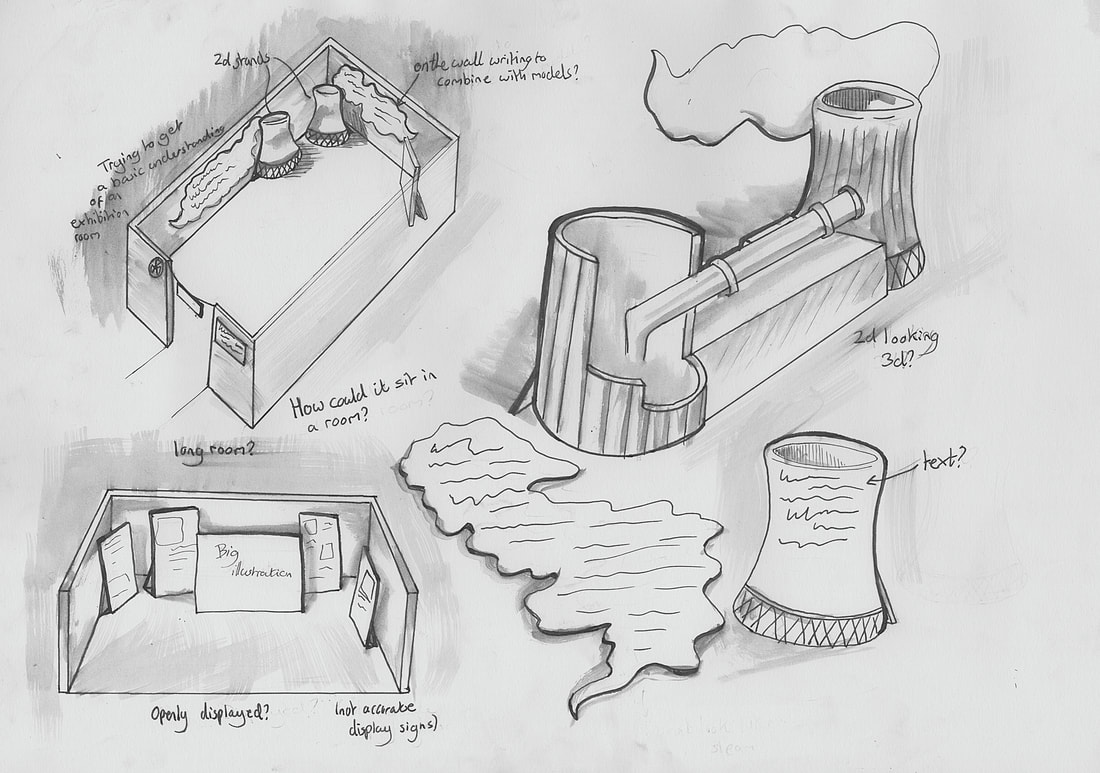 2d stands
on the wall writing to
combine with models?
Trying to get
a basic understanding
of an
exhibition
room
2d looking
3d?
How could it sit in
a room?
long room?
text?
Big
illustration
Openly displayed?
(not accurate
display signs)